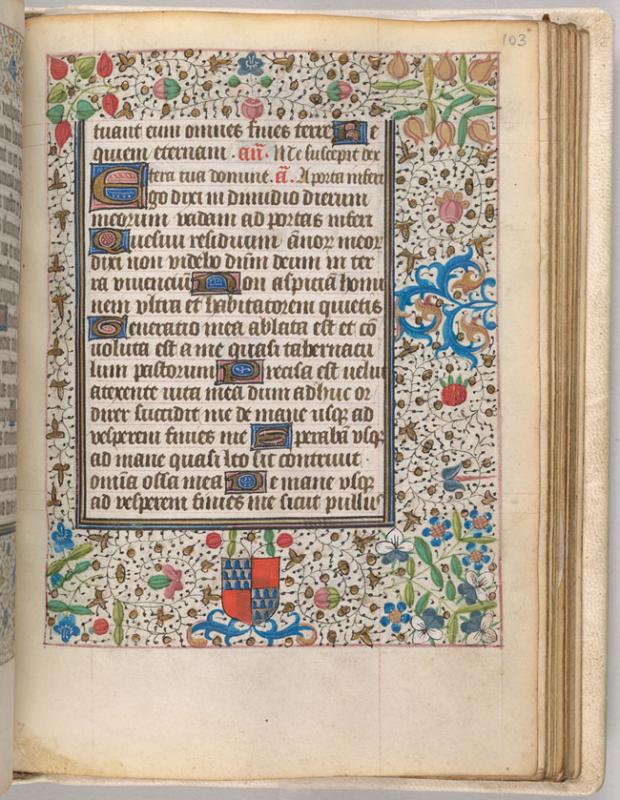 103
tuant eum omnes fines terre Re
quiem eternam . añ. Me suscepit dex
tera tua domine . ā. A porta inferi
Ego dixi in dimidio dierum
meorum vadam ad portas inferi
Quesiui residuum ānoꝝ meoꝝ
dixi non videbo dn̄m deum in ter
ra viuenciū Non aspiciā homi
nem vltra et habitatorem quietis
Generatio mea ablata est et cō
uoluta est a me quasi tabernacu
lum pastorum Precisa est velut
a texente uita mea dum adhuc or
direr succidit me de mane vsqꝫ ad
vesperem finies me Sperabā vsqꝫ
ad mane quasi leo sic contriuit
omīa ossa mea De mane vsqꝫ
ad vesperem finies me sicut pullus